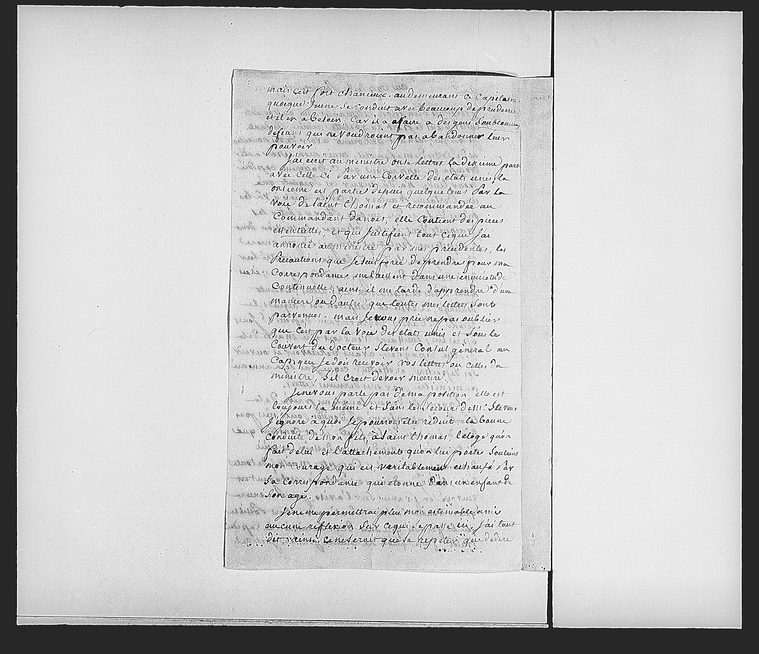 mais c'est fort chanceux. au demeurant ce Capitaine
quoique jeune se conduit avec beaucoup de prudence
et il en a besoin car il a afaire a des gens soubconneux
qui ne voudroient pas abandonner leur
pouvoir.
J'ai ecrit au ministre onse lettres la dixieme part
avec celle ci par une Corvette des etats unis, la
onsieme est partie depuis quelque tems par la
voie de saint thomas et recommandée au
Commandant danois, elle contient des pieces
essentielles, et qui justifient tout ce que j'ai
annoncé au ministre par mes precedentes, les
Precautions que je suis forcé de prendre pour ma
Correspondance me laissent dans une inquietude
Continuelle, ainsi il me tarde d'apprendre d'une
maniere ou d'autre que toutes mes lettres sont
parvenues; mais je vous prie ne pas oublier
que c'est par la voie des etats unis et sous le
Couvert du docteur Stevens Consul general au
Cap que je dois recevoir vos lettres ou celles du
ministre, s'il croit devoir m'ecrire.
Je ne vous parle pas de ma position elle est
toujours la meme et sans les secours de Mr. Stevens
j'ignore à quoi je pourrois etre reduit. la bonne
conduite de mon fils à Saint thomas, l'eloge qu'on
fait de lui et l'attachement qu'on lui porte soutiens
mon courage qui est veritablement echaufé par
sa correspondance qui etonne dans un enfant de
son age.
Je ne me permettrai plus mon estimable ami
aucune reflexion sur ce qui se passe ici, j'ai tout
dit ainsi ce ne seroit que se repeter que de dire